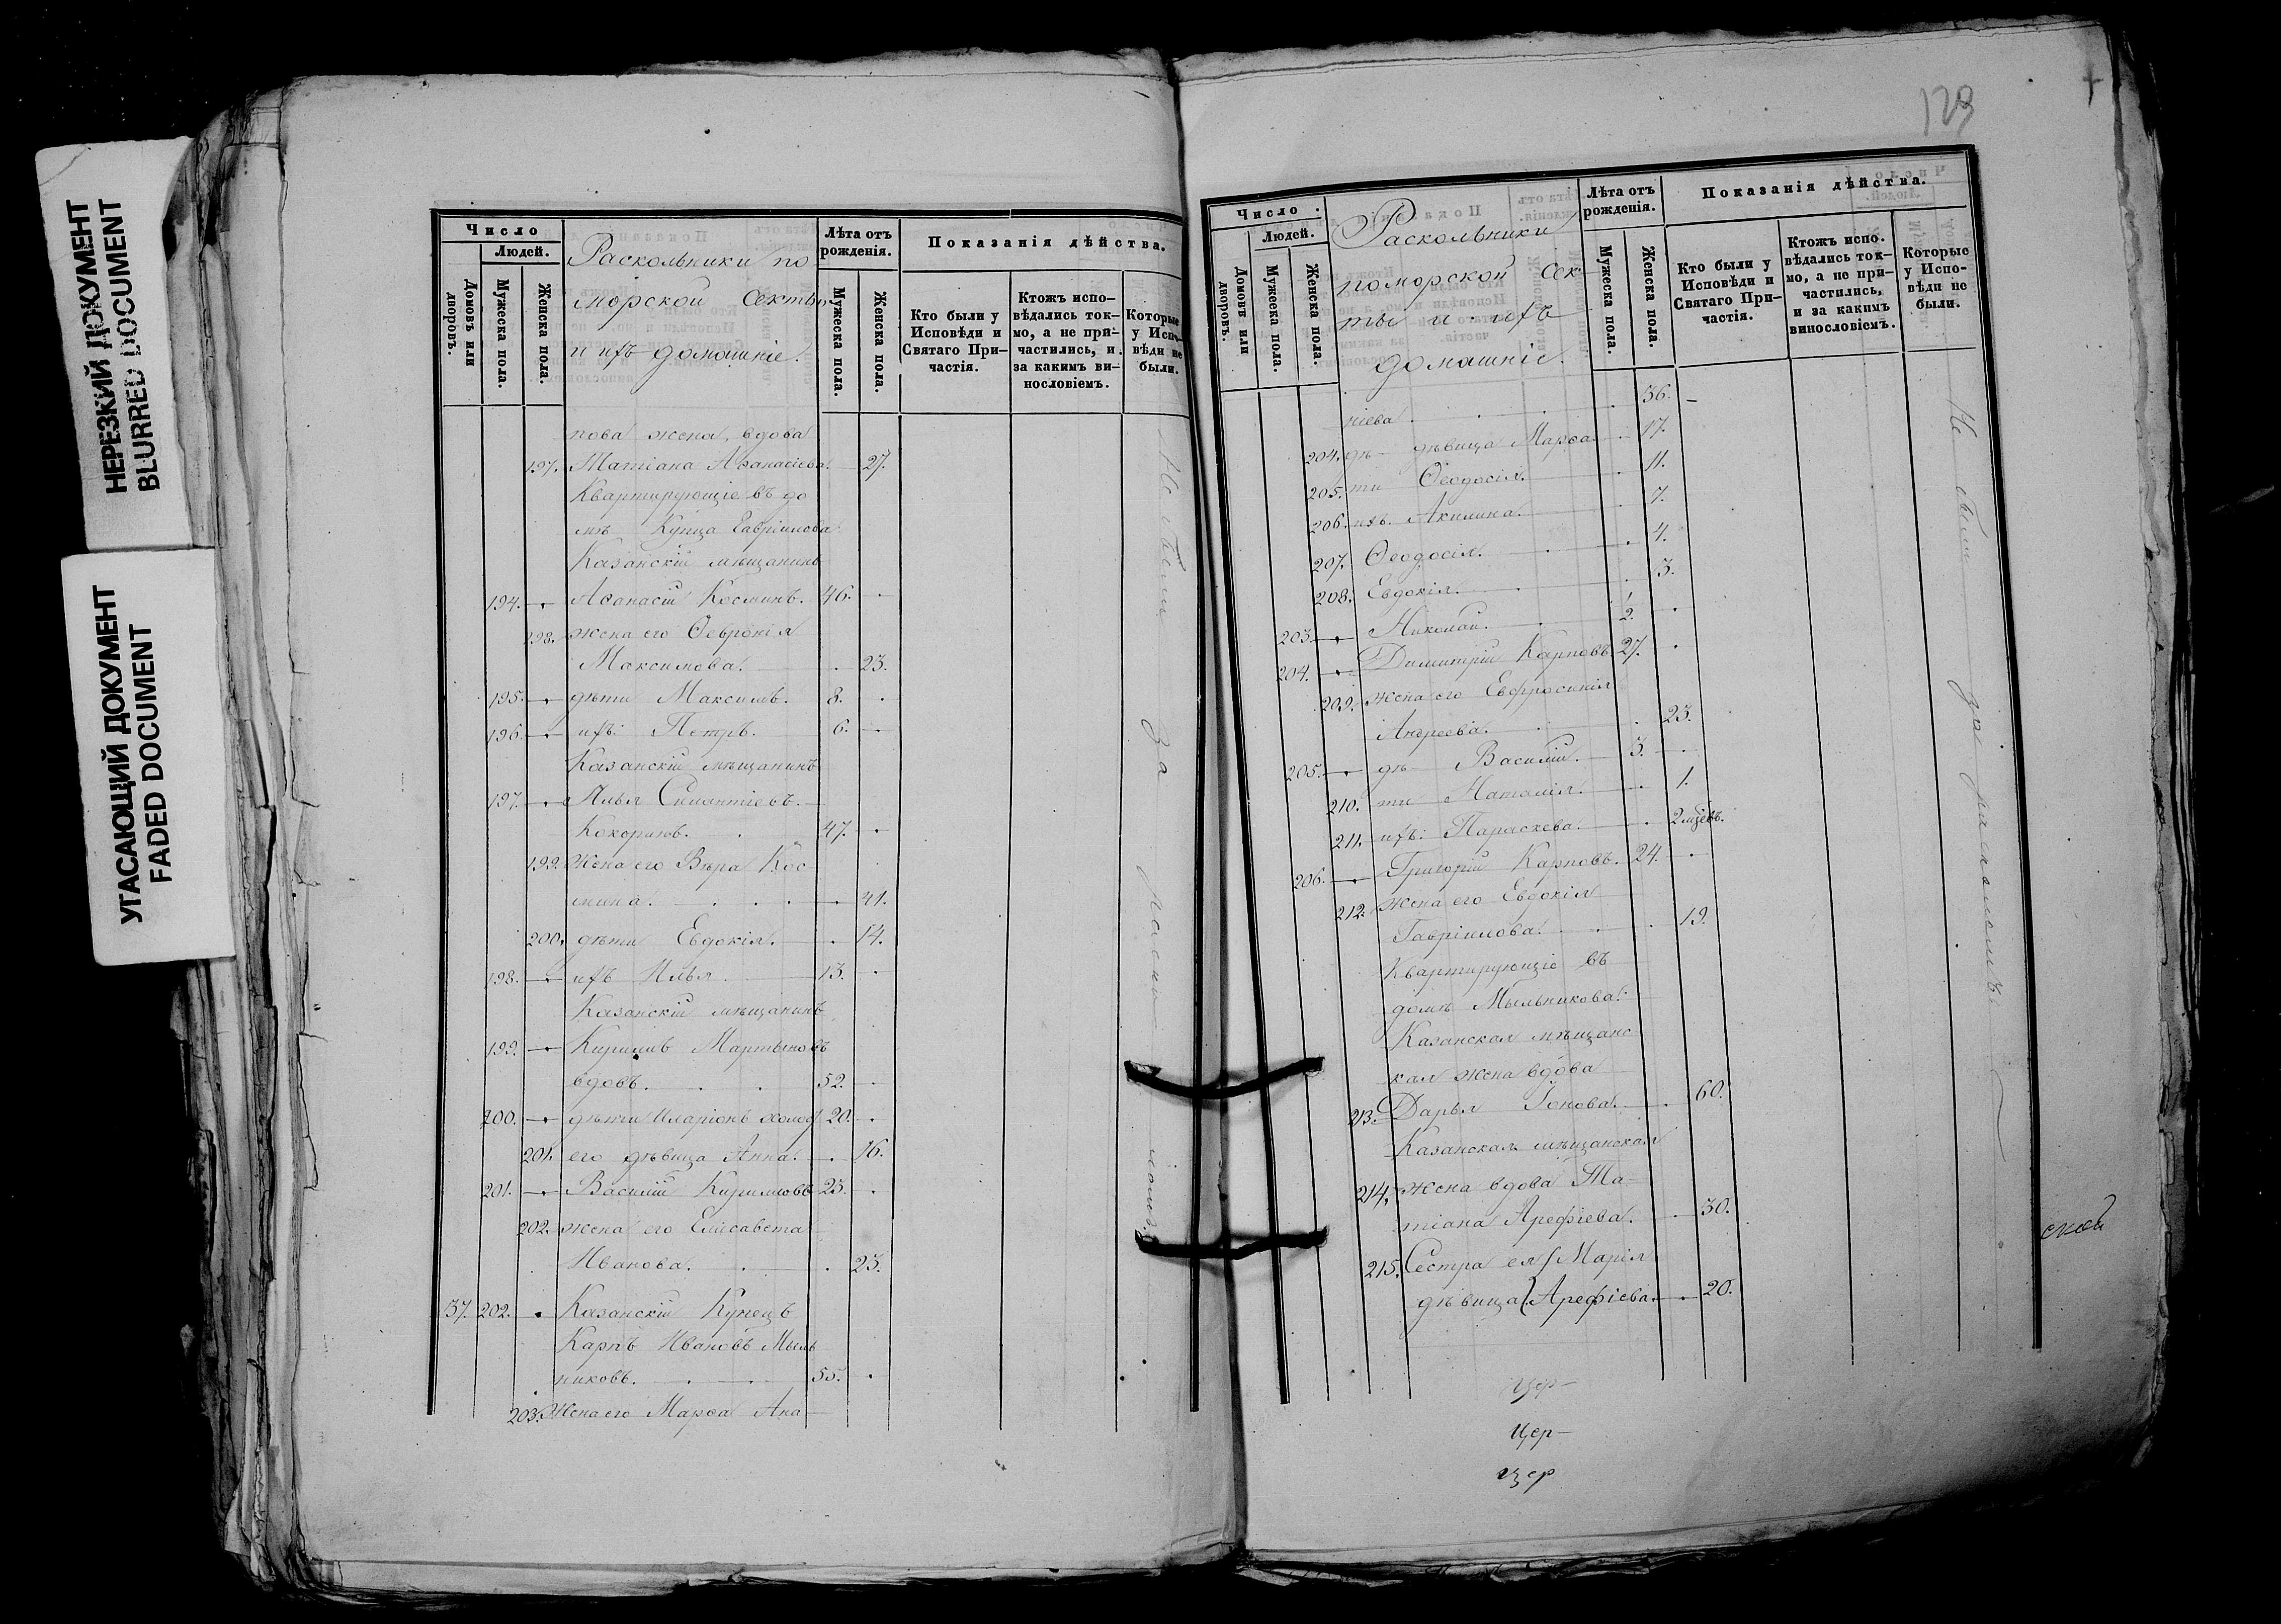 НЕРЕЗКИЙ ДОКУМЕНТ
BLURRED DOCUMENT
УГАСАЮЩИЙ ДОКУМЕНТ
FADED DOCUMENT
Число
Людей.
Домовъ или дворовъ.
Мужеска пола.
Женска пола.
Раскольники по
морской секты
и ихъ домашніе.
Лѣта отъ рожденія.
Мужеска пола.
Женска пола.
Показанія дѣйства.
Кто были у Исповѣди и Святаго При-
частія.
Ктожъ испо-
вѣдались ток-
мо, а не при-
частились, и
за какимъ ви-
нословіемъ.
Которые
у Испо-
вѣди не
были.
пова жена, вдова
197. Матіана Аѳанасіева. 27.
Квартирующіе въ до
мѣ Купца Гавріилова
Казанскій мѣщанинъ
194. Аѳанасій Косминъ. 46.
198. жена его Ѳевронія
Максимова. 23.
195. дѣти Максимъ. 8.
196. ихъ: Петръ. 6.
Казанскій мѣщанинъ
197. Илья
Кокоринъ. 47.
199. Жена его Вѣра Кос-
мина. 41.
200. дѣти Евдокія. 14.
198. ихъ Илья 13.
Казанскій мѣщанинъ
199. Кирилъ Мартыновъ
вдовъ. 52.
200. дѣти Иларіонъ холос 20.
201. его дѣвица Анна. 16.
201. Василій Кириловъ 25.
202. жена его Елисавета
Иванова. 23.
37. 202. Казанскій Купецъ
Карпъ Ивановъ Мыль
никовъ. 55.
203. Жена его Марѳа Ана-
Не были за раскольн
129
Число
Людей.
Домов. или дворовъ.
Мужеска пола.
Женска пола.
Раскольники
поморской сек-
ты и ихъ
домашніе.
Лѣта отъ рожденія.
Мужеска пола.
Женска пола.
Показанія дѣйства.
Кто были у Исповѣди и Святаго При-
частія.
Ктожъ испо-
вѣдались ток-
мо, а не при-
частились,
и за какимъ
винословіемъ.
Которые
у Испо-
вѣди не
были.
ніева 36.
204. дѣ- дѣвица Марѳа 17.
205. ти Ѳеодосія. 11.
206. ихъ. Акилина. 7.
207. Ѳеодосія. 4.
208. Евдокія. 3.
203. Николай.
204. Димитрій Карповъ 27.
209. жена его Евфросинія
Андреева. 23.
205. дѣ- Василій. 3.
210. ти Наталія. 1.
211. ихъ: Параскева. 2 мѣсяц.
206. Григорій Карповъ. 24.
212. жена его Евдокія
Гавріилова. 19.
Квартирующіе въ
домѣ Мыльникова:
Казанская мѣщанс
кая жена вдова
213. Дарья Іонова. 60.
Казанская мѣщанская
214. жена вдова Та-
тіана Арефіева. 30.
215. Сестра ея Марія
дѣвица Арефіева. 20.
Не были за расколомъ
цер-
Цер-
цер
ской